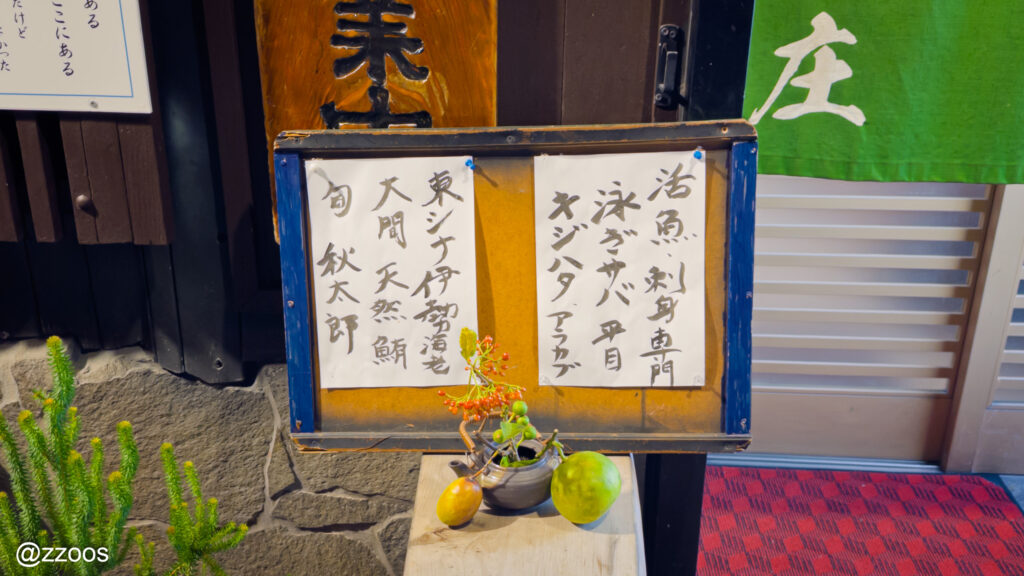 庄
活魚、刺身専門
泳ぎサバ 平目
キジハタ アラカブ
東シナ伊勢海老
大間 天然鮪
旬 秋太郎
ある
ここにある
だけど
かった
@zzoos